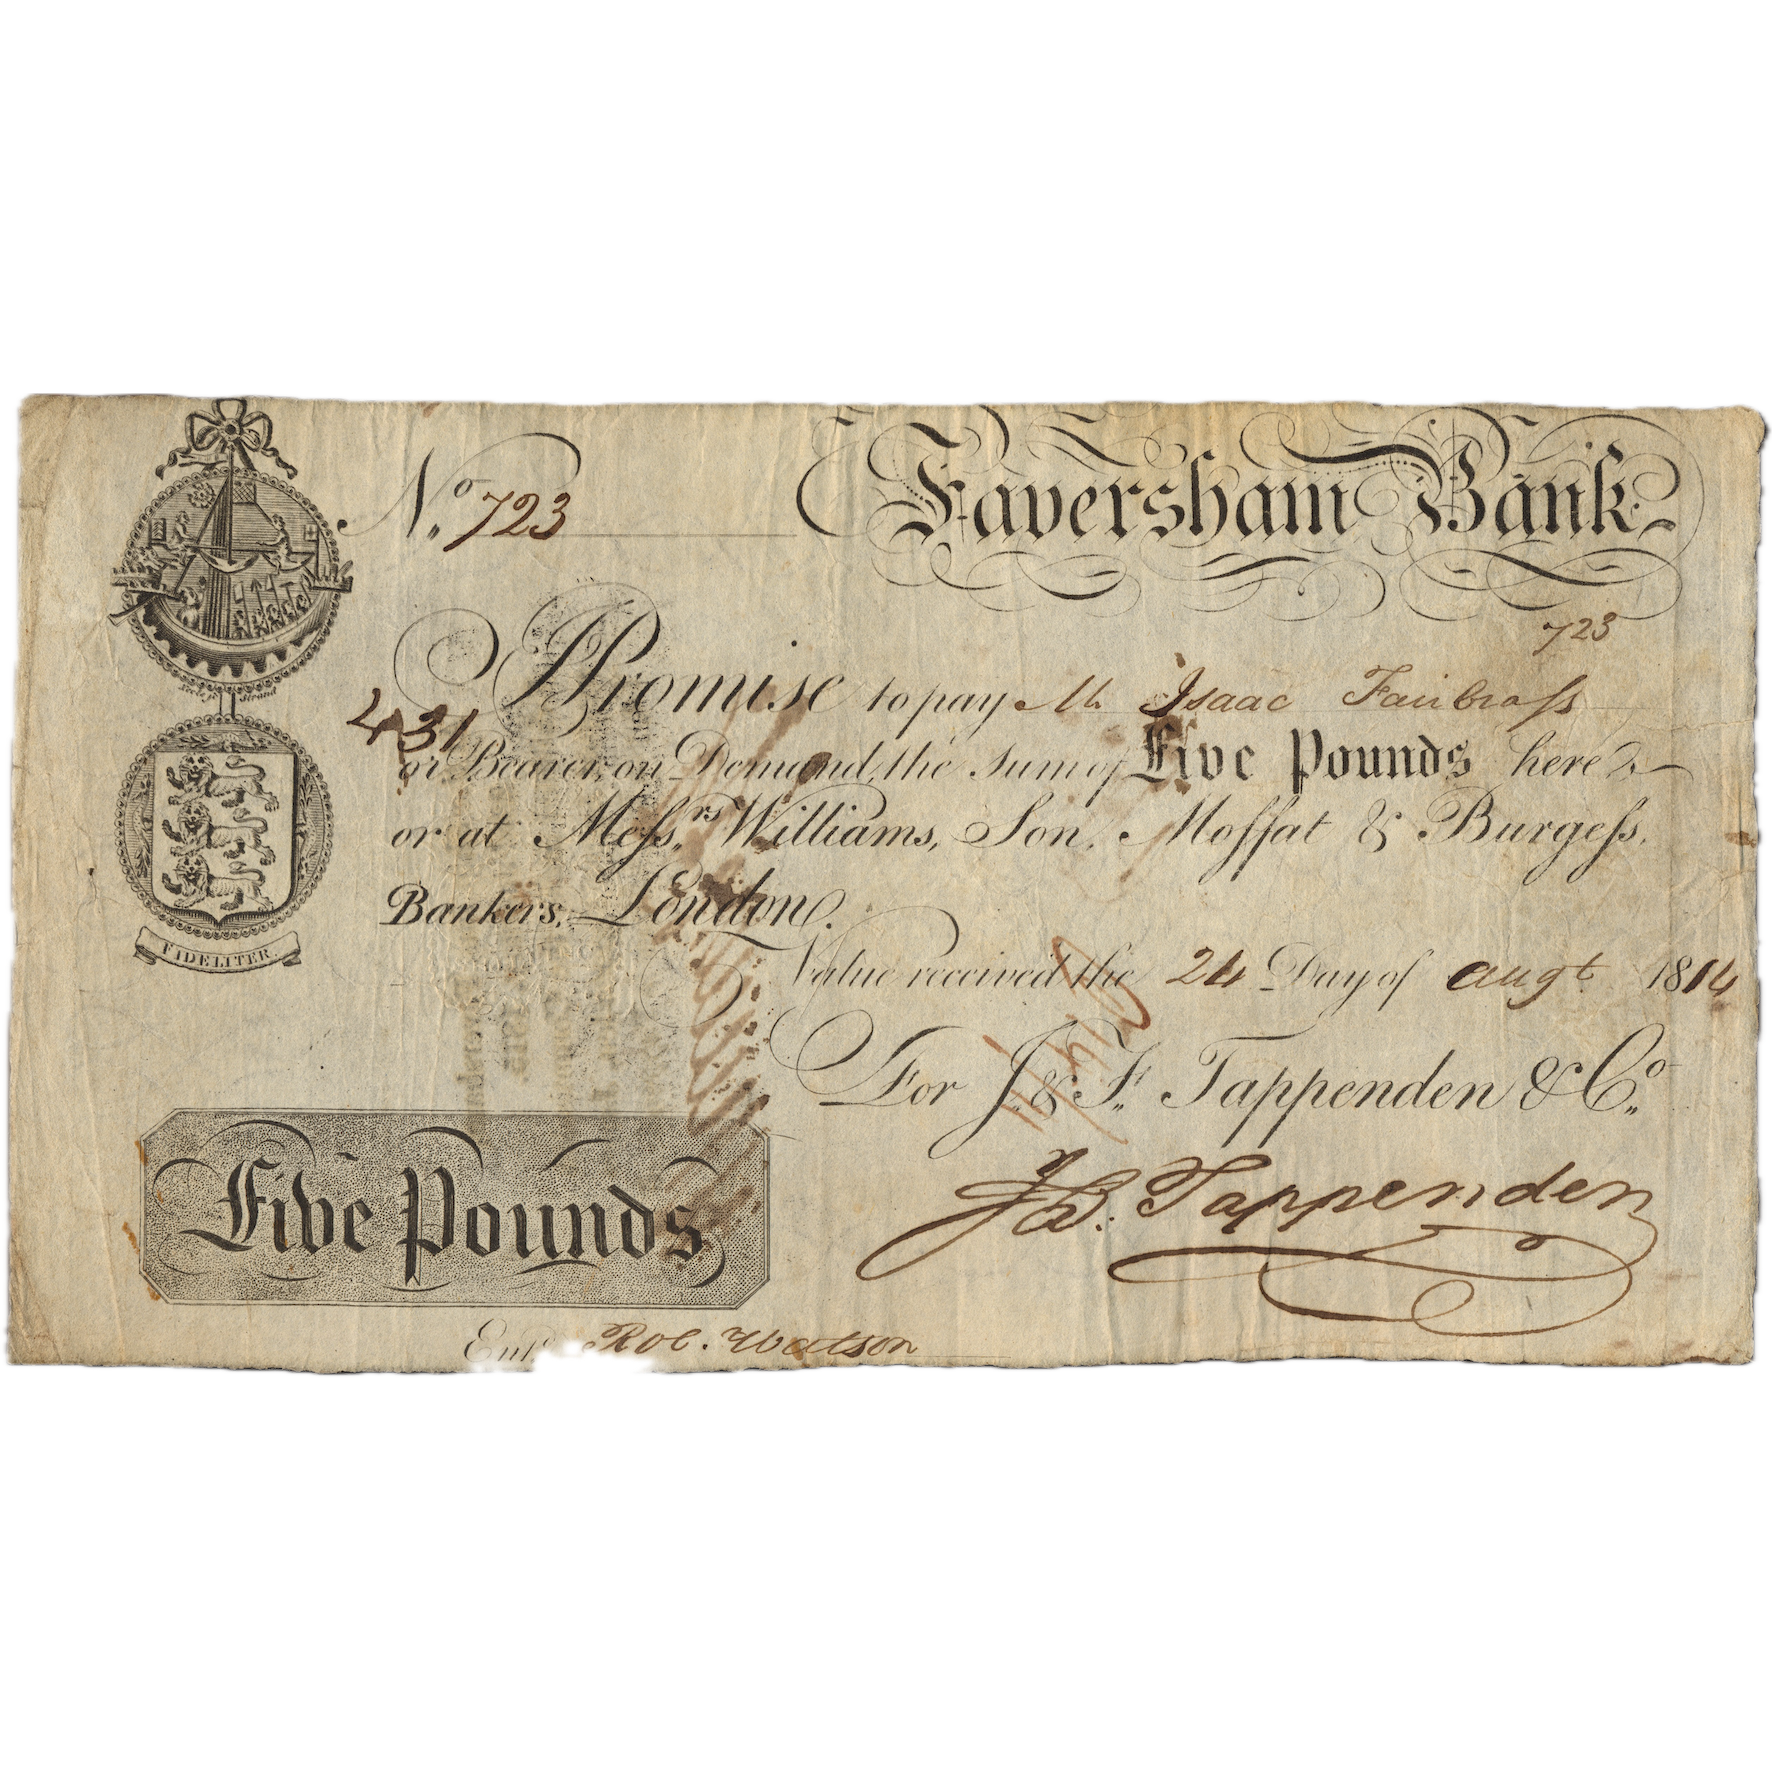 No. 723
Faversham Bank
723
I Promise to pay Mr Isaac Fairbrass
431
or Bearer, on Demand, the Sum of Five Pounds here
or at Messrs. Williams, Son, Moffat & Burgess,
Bankers, London.
Value received the 24 Day of augt. 1814
For J. & F. Tappenden & Co.
Tappenden
FIDELITER
Five Pounds
Entd. Rob. Watson